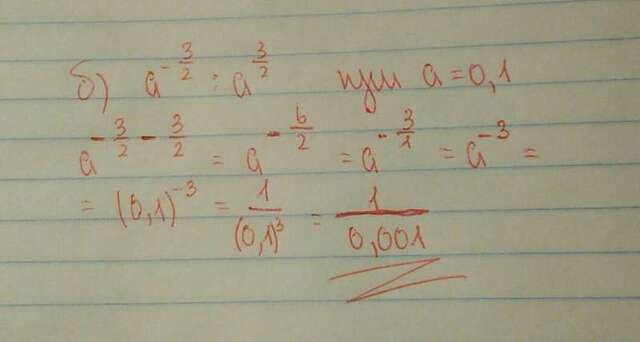 б) a^{-\frac{3}{2}} : a^{\frac{3}{2}} при a = 0,1
a^{-\frac{3}{2} - \frac{3}{2}} = a^{-\frac{6}{2}} = a^{-\frac{3}{1}} = a^{-3} =
= (0,1)^{-3} = \frac{1}{(0,1)^3} = \frac{1}{0,001}